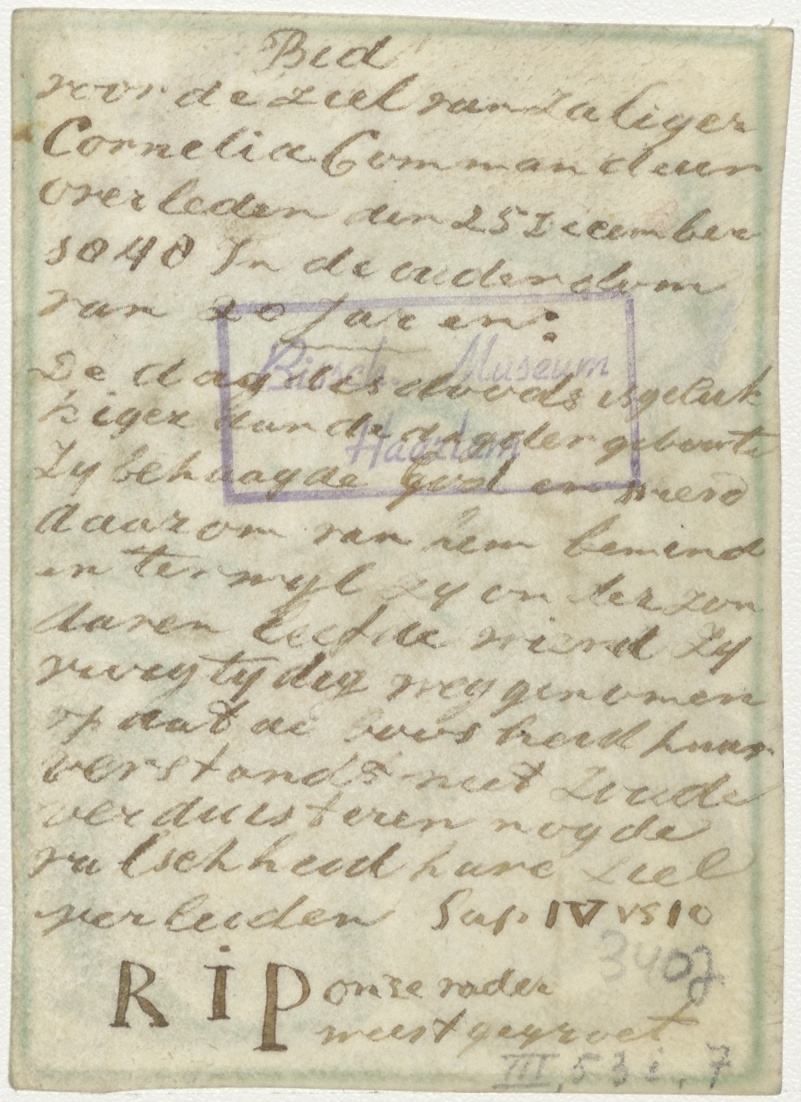 Bid
voor de ziel van Zaliger
Cornelia Commandeur
overleden den 25 December
1848 In de ouderdom
van 20 Jaren:
De dag des doods is geluk
kiger dan de dag der geboorte
Zy behaagde God en wierd
daarom van hem bemind
en terwyl zy onder zon
daren leefde wierd Zy
vroegtydig weggenomen
op dat de boosheid haar
verstand niet Zoude
verduisteren nog de
valschheid hare Ziel
verleiden Sap IV vs 10
R i P onze vader
weest gegroet
Bissch. Museum
Haarlem
3407
III, 53 i, 7